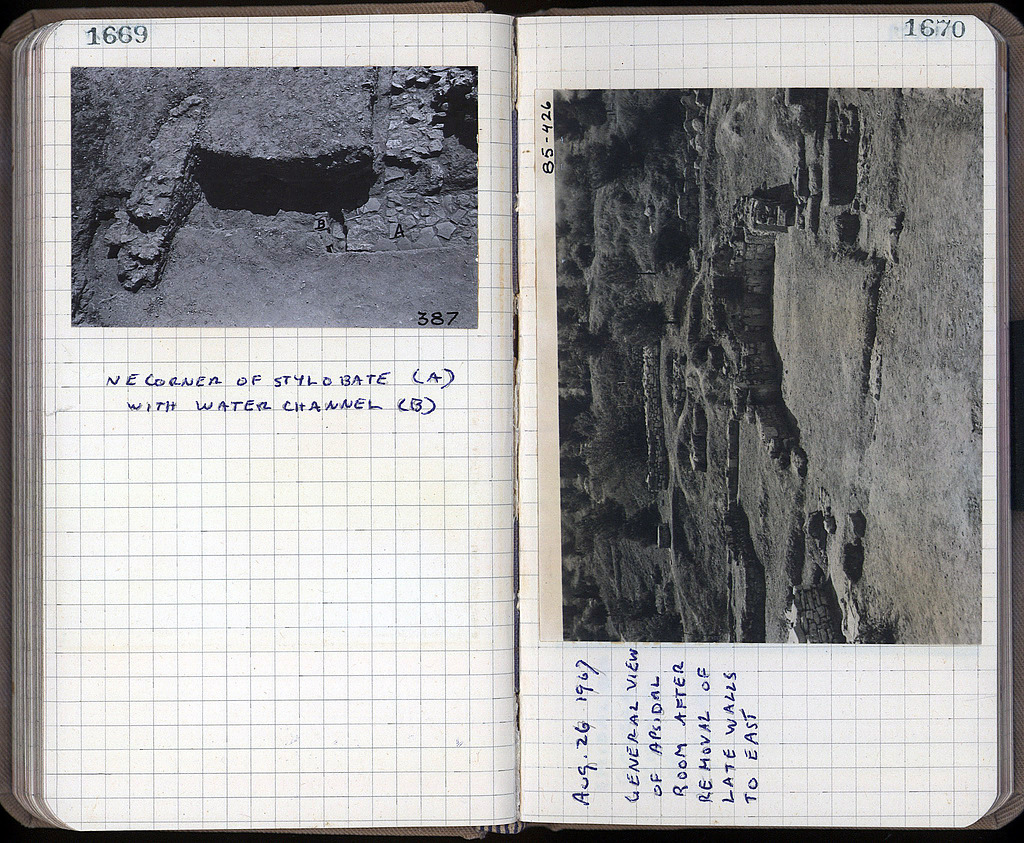 1669
B
A
387
NE CORNER OF STYLOBATE (A)
WITH WATER CHANNEL (B)
1670
85-426
Aug. 26 1967
GENERAL VIEW
OF APSIDAL
ROOM AFTER
REMOVAL OF
LATE WALLS
TO EAST